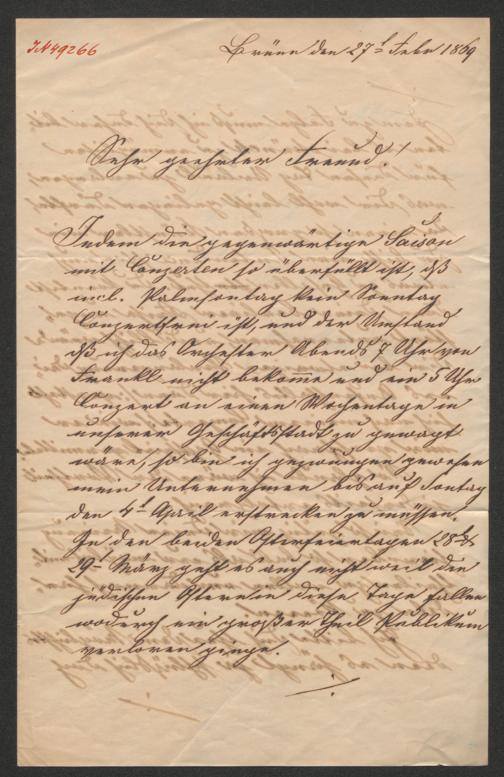 IN 49266
Brünn den 27t Febr 1869
Sehr geehrter Freund!
Indem die gegenwärtige Saison
mit Conzerten so überfüllt ist, dß
incl. Palmsontag kein Sonntag
Conzertfrei ist, und der Umstand
dß ich das Orchester Abends 7 Uhr von
Frankl nicht bekome und ein 5 Uhr
Conzert an einen Wochentage in
unserer Geschäftsstadt zu gewagt
wäre, so bin ich gezwungen gewesen
mein Unternehmen bis auf Sontag
den 4t April erstrecken zu müssen.
In den beiden Osterfeiertagen 28t &
29t März geht es auch nicht weil die
jüdischen Ostern in diese Tage fallen
wodurch ein großer Theil Publikum
verloren ginge.